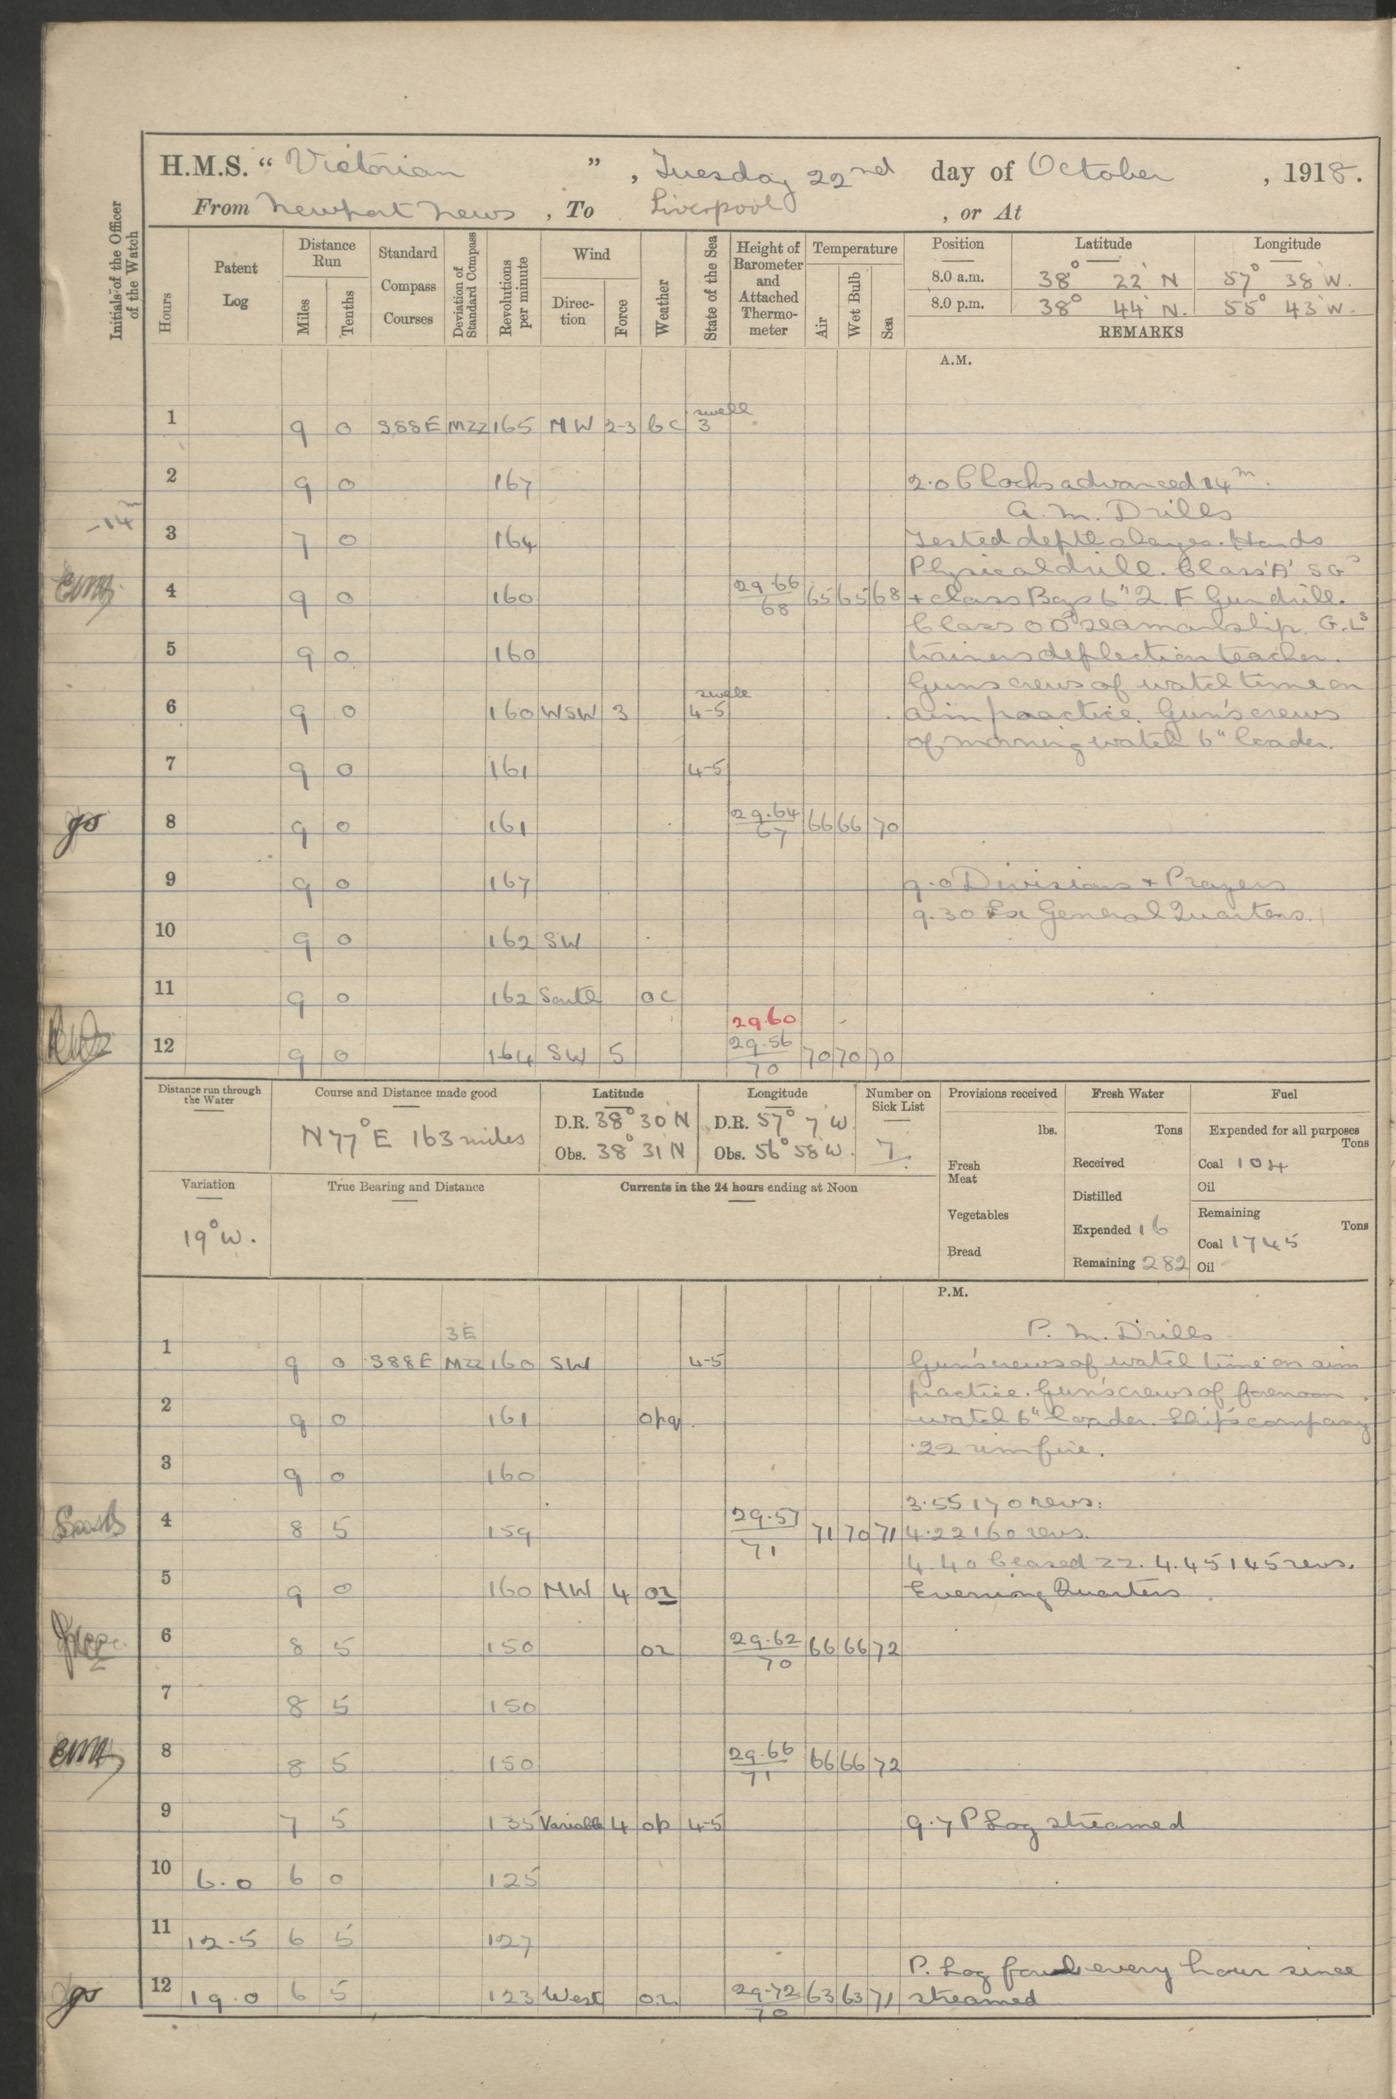 H.M.S. “ Victorian ” , Tuesday 22nd day of October , 1918.
From Newport News , To Liverpool , or At
Initials of the Officer of the Watch
Hours
Patent Log
Distance Run
Miles
Tenths
Standard Compass Courses
Deviation of Standard Compass
Revolutions per minute
Wind
Direc-tion
Force
Weather
State of the Sea
Height of Barometer and Attached Thermo-meter
Temperature
Air
Wet Bulb
Sea
Position Latitude Longitude
8.0 a.m. 38° 22' N 57° 38' W.
8.0 p.m. 38° 44' N. 55° 43' W.
REMARKS
A.M.
1 9 0 S88E MZZ 165 NW 2-3 bc swell 3
2 9 0 167 2.0 Clocks advanced 14m.
-14m
A.M. Drills
3 7 0 164 Tested depth charges. Hands
Physical drill. Class 'A' SGs
4 9 0 160 29.66 68 65 65 68 + class Boys 6" Q.F Gun drill.
Class OD seamanship. G.Ls
5 9 0 160 trainers deflection teacher.
Guns crews of watch time on
6 9 0 160 WSW 3 swell 4-5 aim practice. Gun's crews
of morning watch 6" loader.
7 9 0 161 4-5
8 9 0 161 29.64 67 66 66 70
9 9 0 167 9.0 Divisions + Prayers
9.30 Ex General Quarters.
10 9 0 162 SW
11 9 0 162 South oc
29.60
12 9 0 164 SW 5 29.56 70 70 70 70
Distance run through the Water
Course and Distance made good
N77°E 163 miles
Latitude
D.R. 38° 30 N
Obs. 38° 31 N
Longitude
D.R. 57° 7' W
Obs. 56° 58' W.
Number on Sick List
7.
Provisions received
lbs.
Fresh Meat
Vegetables
Bread
Fresh Water
Tons
Received
Distilled
Expended 16
Remaining 282
Fuel
Expended for all purposes
Tons
Coal 104
Oil
Remaining
Tons
Coal 1745
Oil
Variation
19° W.
True Bearing and Distance
Currents in the 24 hours ending at Noon
P.M.
3E
P.M. Drills
1 9 0 S88E MZZ 160 SW 4-5 Gun's crews of watch time on aim
practice. Gun's crews of forenoon
2 9 0 161 opq watch 6" loader. Ship's company
.22 rim fire.
3 9 0 160
3.55 170 revs.
4 8 5 159 29.57 71 71 70 71 4.22 160 revs.
4.40 Ceased ZZ. 4.45 145 revs.
5 9 0 160 NW 4 or Evening Quarters
6 8 5 150 or 29.62 70 66 66 72
7 8 5 150
8 8 5 150 29.66 71 66 66 72
9 7 5 135 Variable 4 op 4-5 9.7 P Log streamed
10 6.0 6 0 125
11 12.5 6 5 127
P. Log foul every hour since
12 19.0 6 5 123 West or 29.72 70 63 63 71 streamed